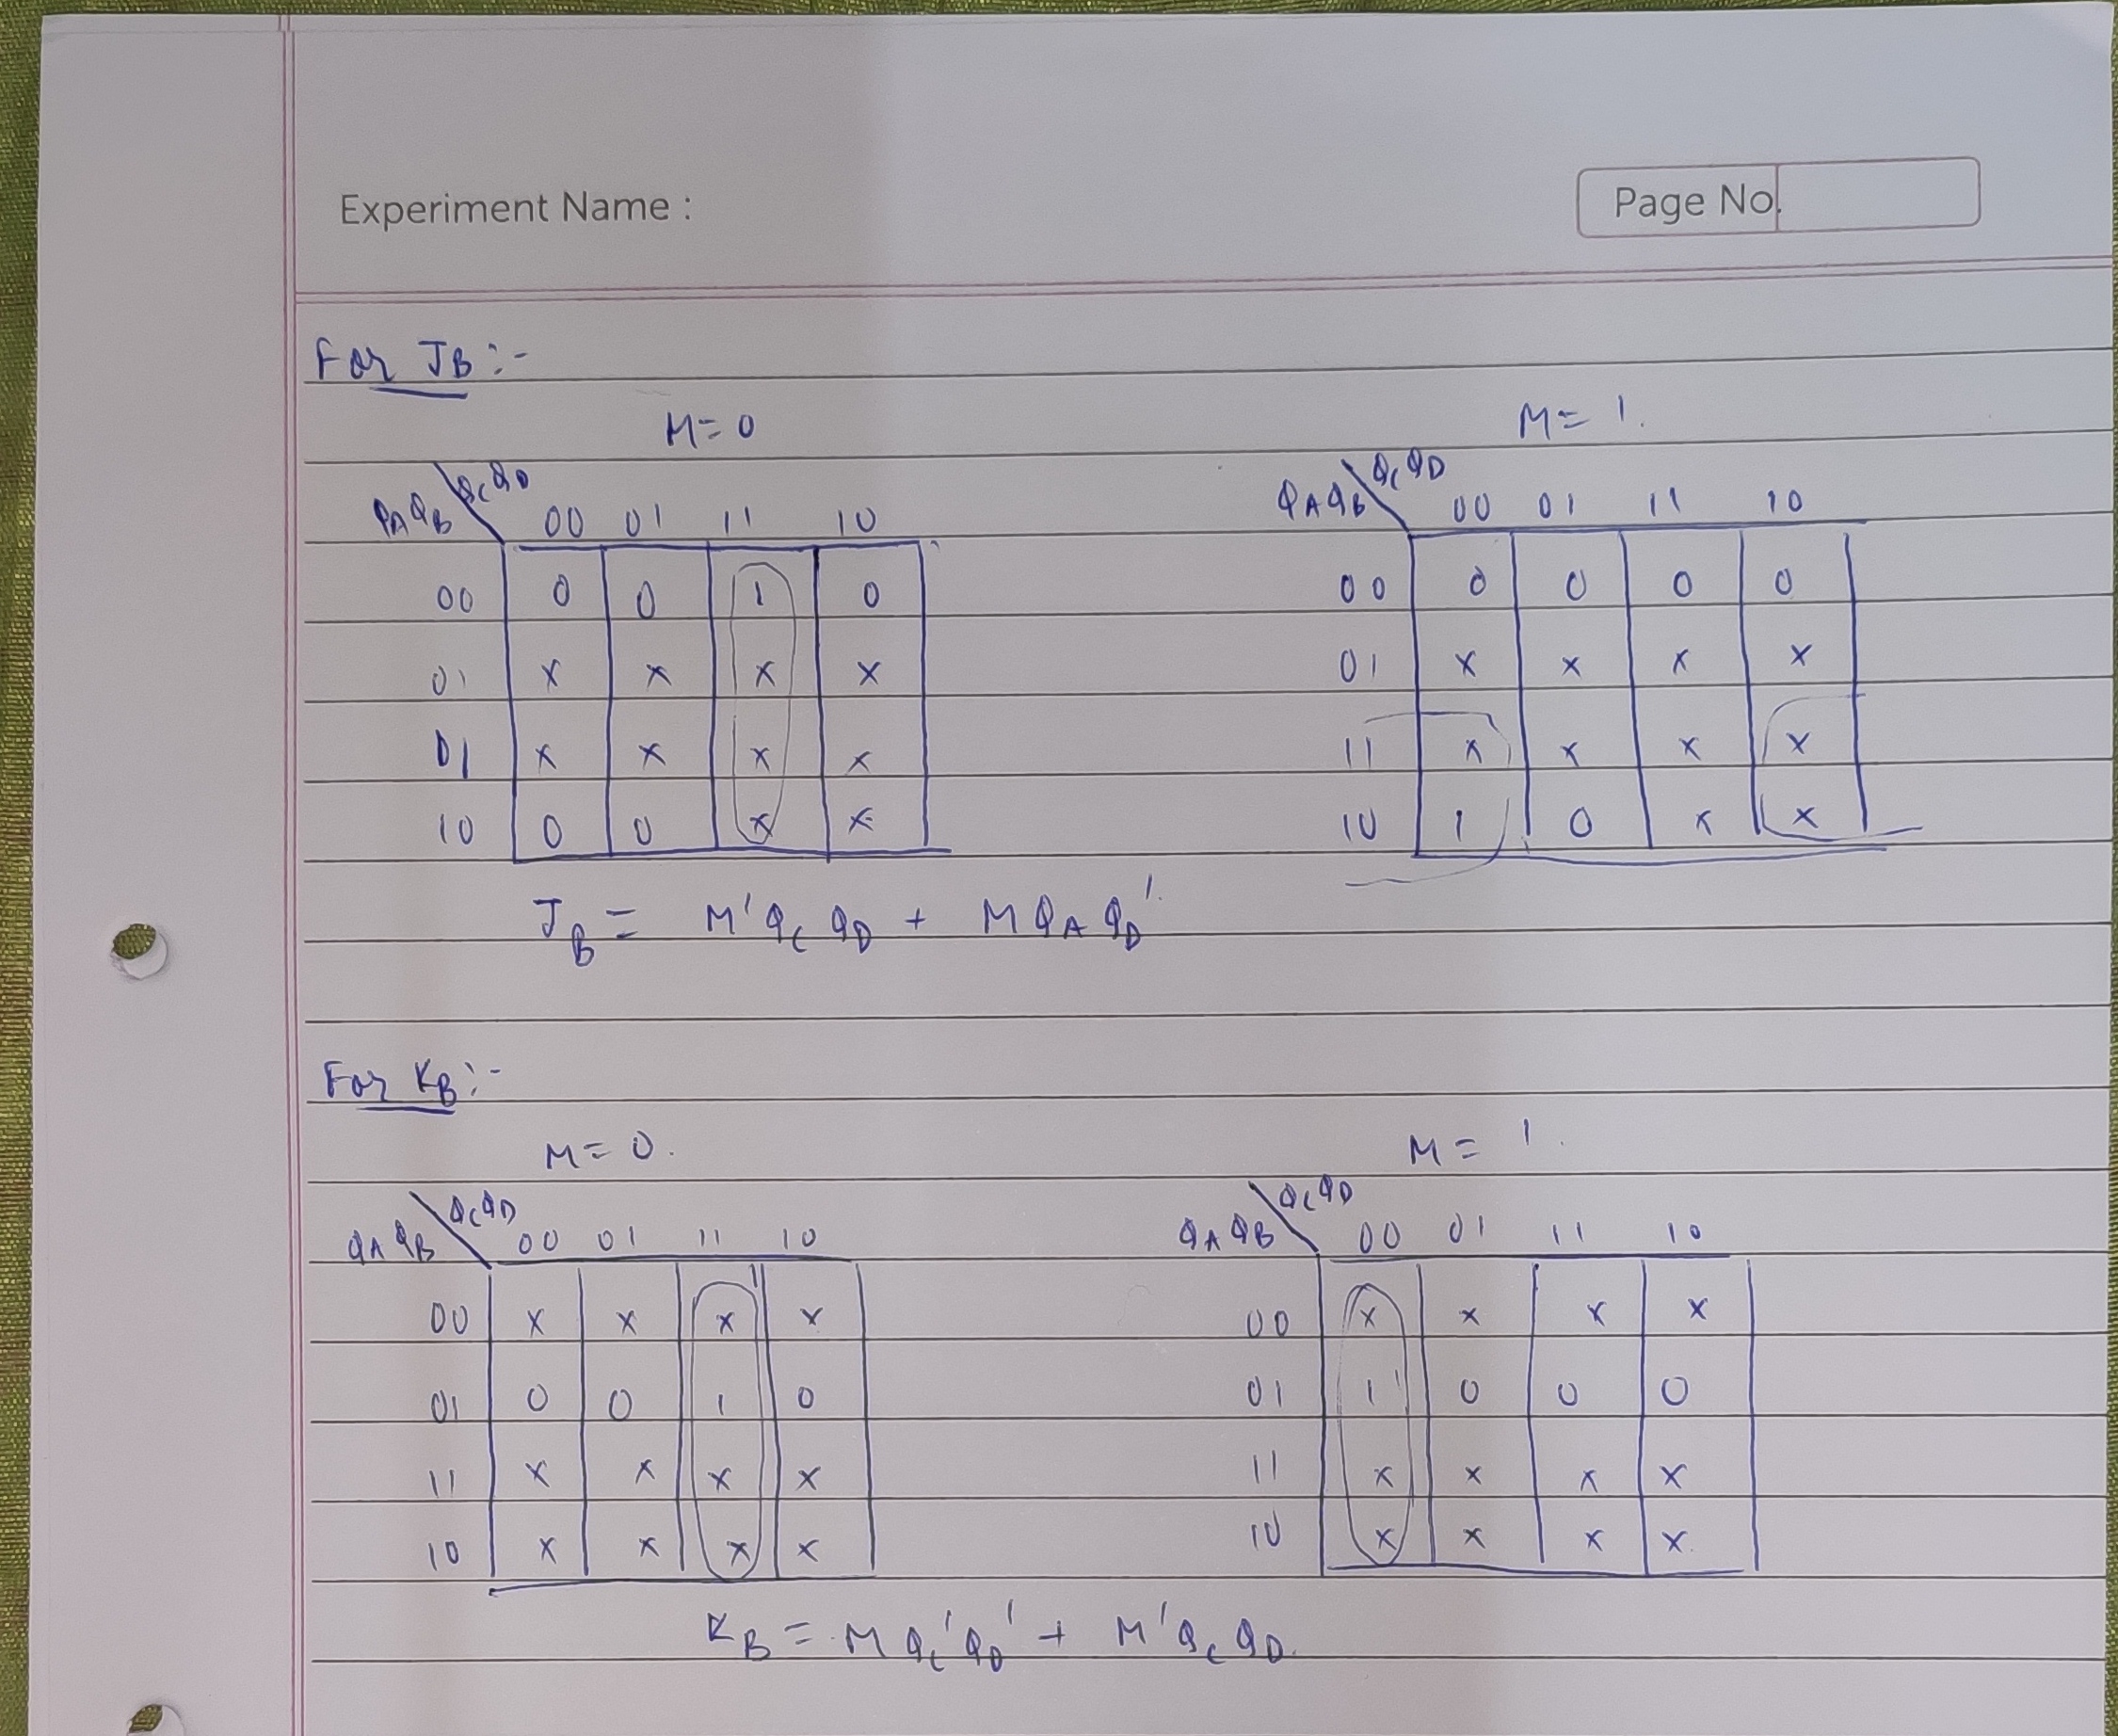 Experiment Name :
Page No.
For JB :-
M = 0
M = 1.
QA QB \ QC QD 00 01 11 10
00 0 0 1 0
01 x x x x
01 x x x x
10 0 0 x x
QA QB \ QC QD 00 01 11 10
00 0 0 0 0
01 x x x x
11 x x x x
10 1 0 x x
JB = M'QC QD + M QA QD'
For KB :-
M = 0.
M = 1.
QA QB \ QC QD 00 01 11 10
00 x x x x
01 0 0 1 0
11 x x x x
10 x x x x
QA QB \ QC QD 00 01 11 10
00 x x x x
01 1 0 0 0
11 x x x x
10 x x x x.
KB = M QC'QD' + M'QC QD.